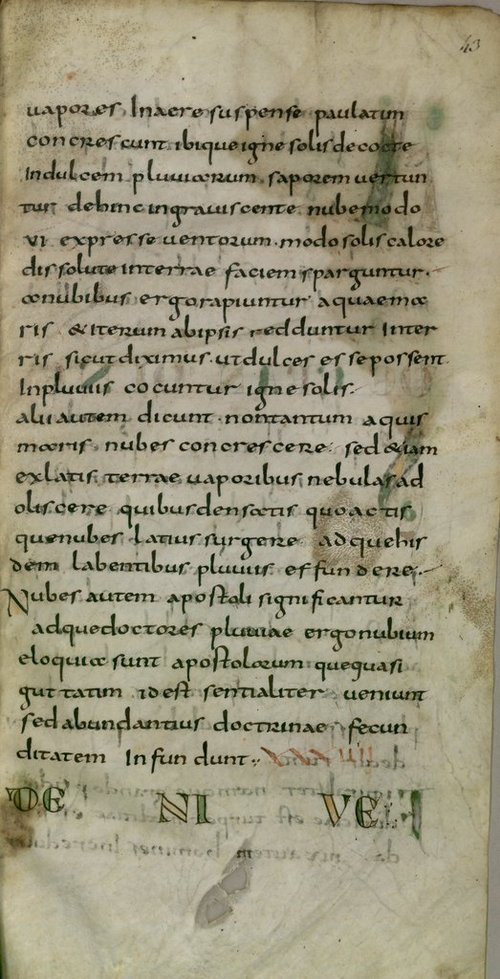 43
vapores In aere suspense paulatim
concrescunt ibique igne solis decocte
Indulcem pluviarum saporem vertun
tur dehinc ingraviscente nube modo
vi expresse ventorum modo solis calore
dissolute interrae faciem sparguntur.
anubibus ergo rapiuntur aquae ma
ris & iterum ab ipsis redduntur Inter
ris sicut diximus ut dulces esse possent
Inpluviis cocuntur igne solis.
alii autem dicunt non tantum aquis
maris nubes concrescere sed & iam
exlatis terrae vaporibus nebulas ad
oliscere quibus densatis quoactis
que nubes latius surgere ad que his
dem labentibus pluviis effundere;
Nubes autem apostoli significantur
adque doctores pluviae ergo nubium
eloquia sunt apostolorum que quasi
guttatim id est sentialiter veniunt
sed abundantius doctrinae fecun
ditatem Infundunt
DE NI VE